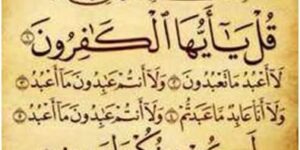 قُلْ يَا أَيُّهَا ٱلْكَٰفِرُونَ ۝١
لَا أَعْبُدُ مَا تَعْبُدُونَ ۝٢ وَلَا أَنتُمْ عَٰبِدُونَ مَا أَعْبُدُ ۝٣
وَلَا أَنَا۠ عَابِدٌ مَّا عَبَدتُّمْ ۝٤ وَلَا أَنتُمْ عَٰبِدُونَ مَا أَعْبُدُ ۝٥